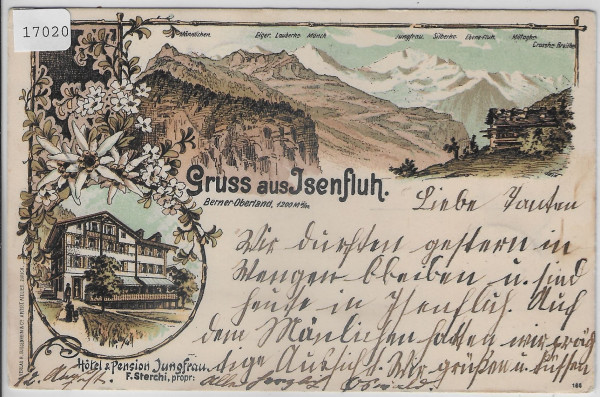 17020
Männlichen. Eiger. Lauberhn. Mönch. Jungfrau. Silberhn. Ebene-Fluh. Mittaghn.
Grosshn. Breithn.
Gruss aus Isenfluh.
Berner-Oberland, 1200 M ü/M.
Liebe Tanten
Wir durften gestern in
Wengen bleiben u. sind
heute in Isenfluh. Auf
dem Mänlichen hatten wir präch
tige Aussicht. Wir grüßen u. küssen
Hôtel & Pension Jungfrau.
F. Sterchi, propr:
12. August.
Oswald.
186